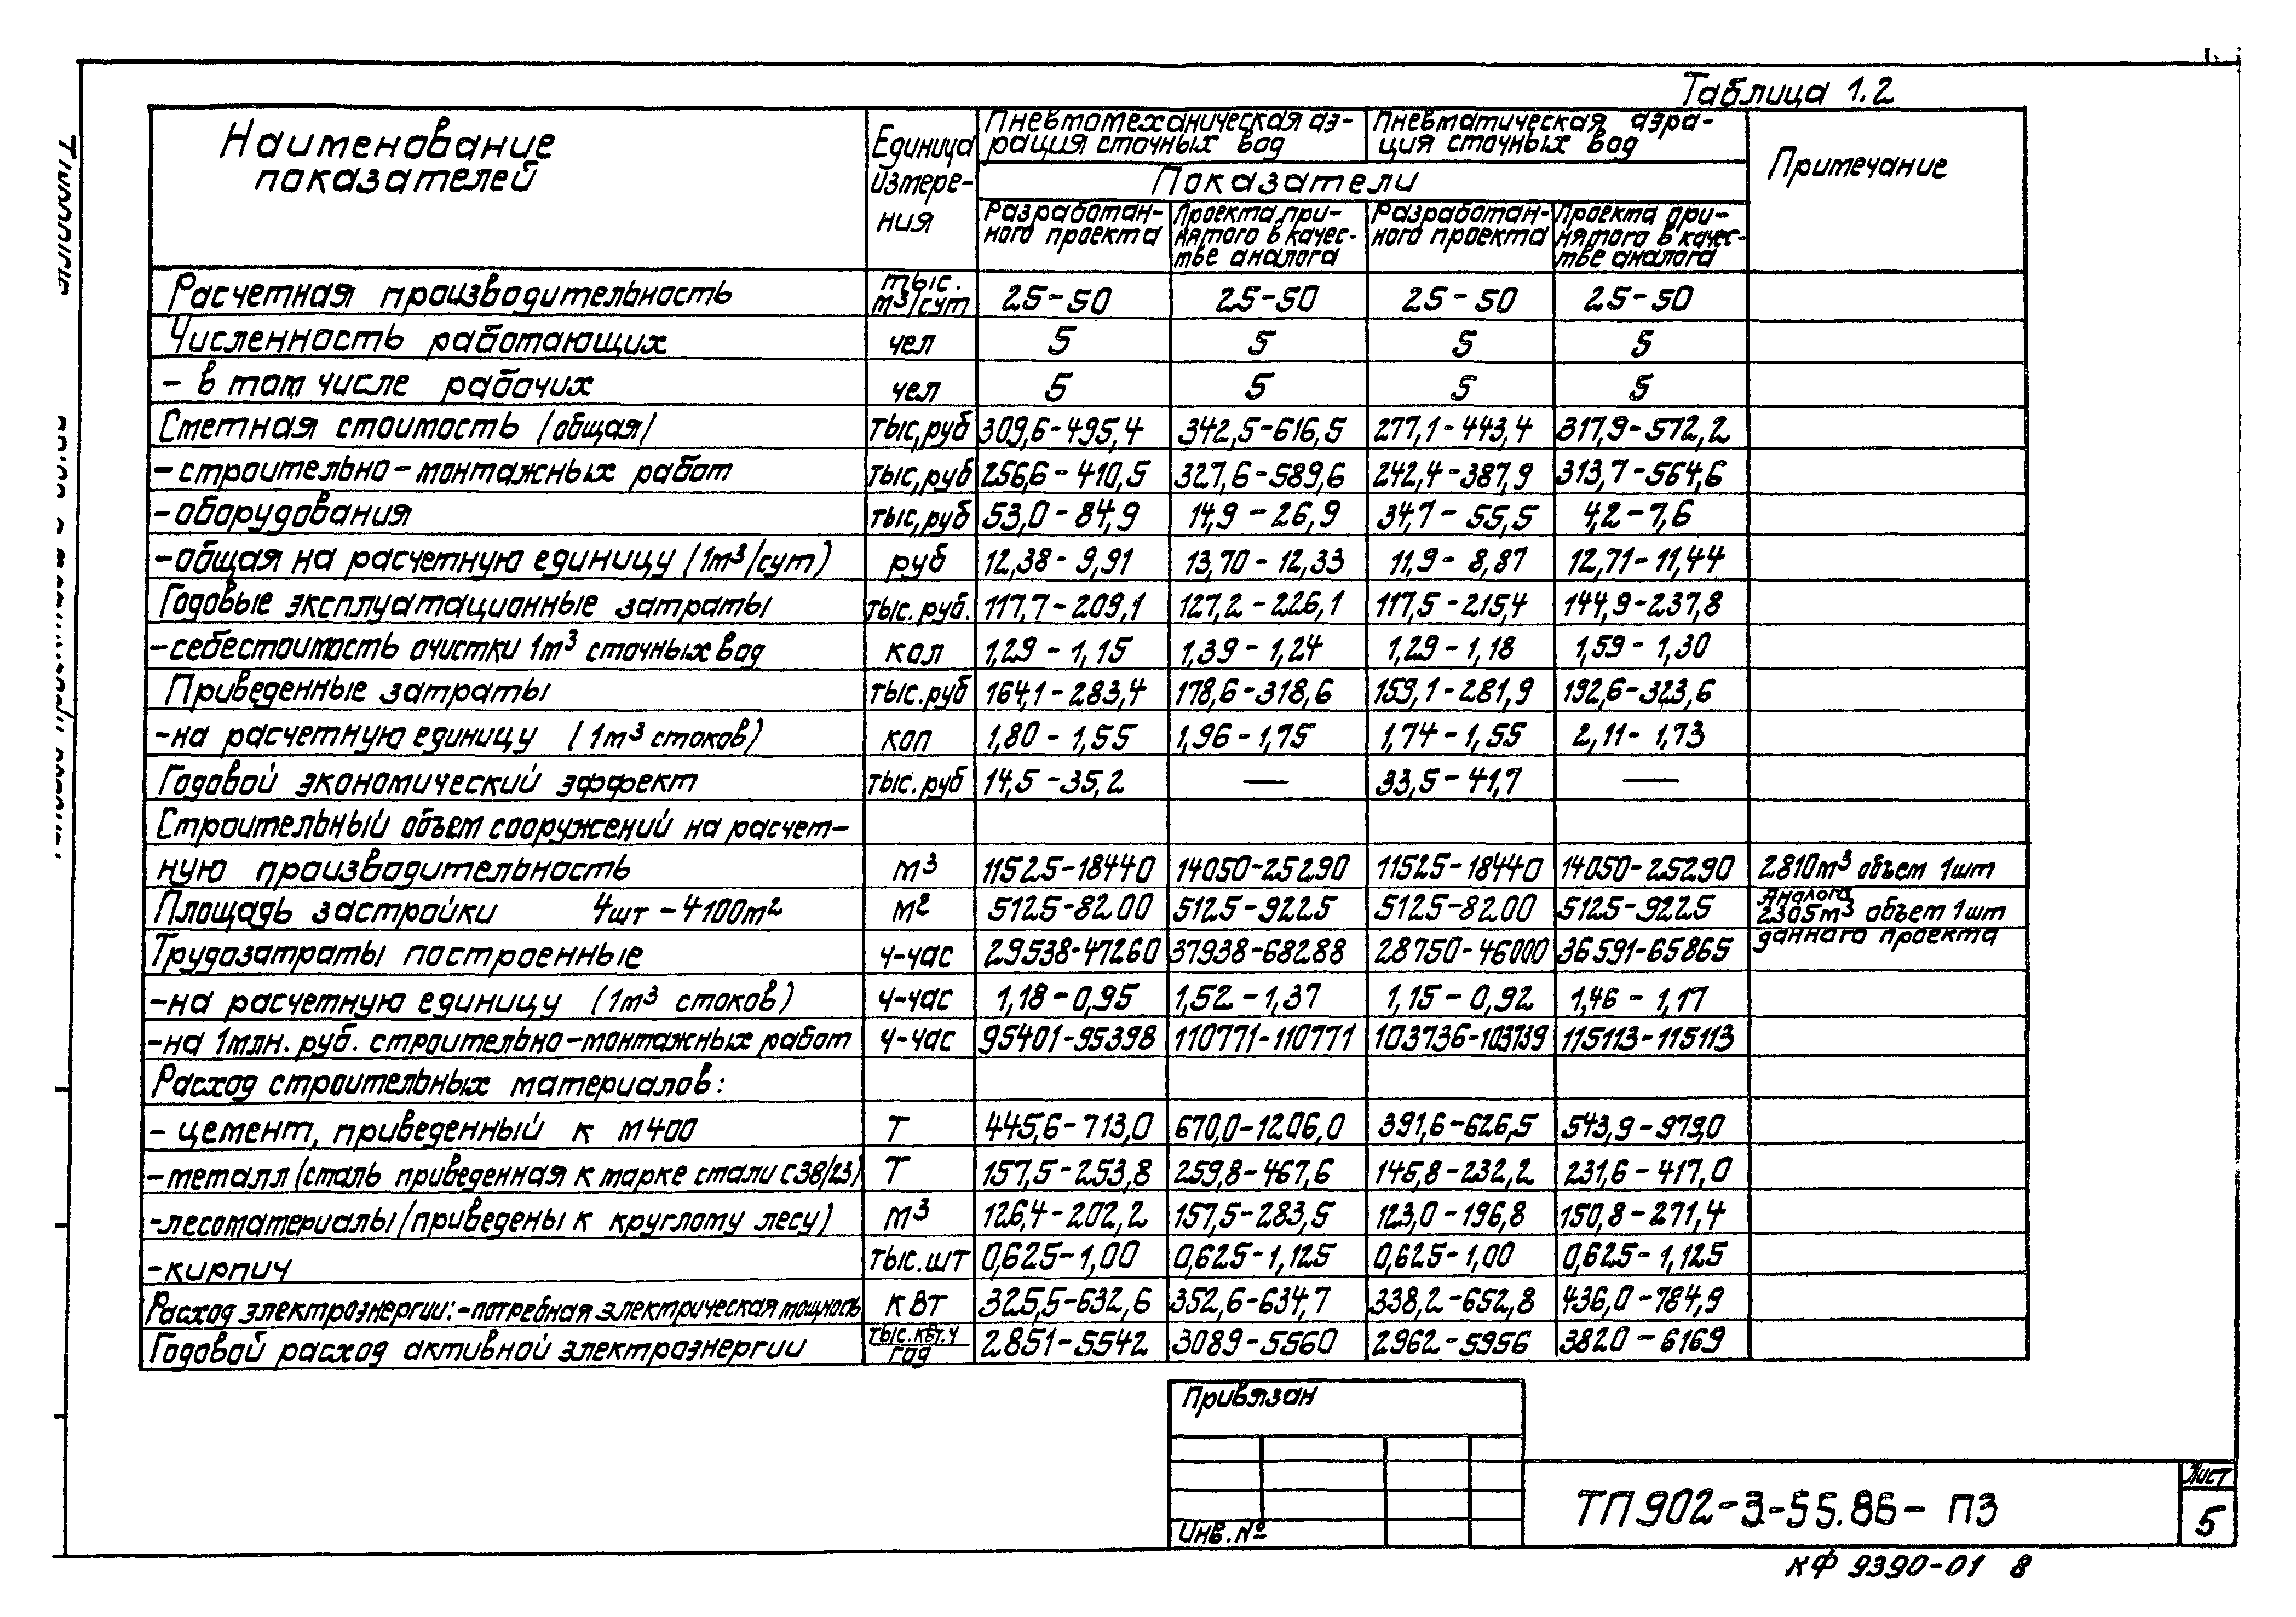 Таблица 1.2
Наименование показателей | Единица измере-ния | Пневтомеханическая аэ-рация сточных вод | Пневматическая аэра-ция сточных вод | Примечание
Показатели
Разработан-ного проекта | Проекта при-нятого в качес-тве аналога | Разработан-ного проекта | Проекта при-нятого в качес-тве аналога
Расчетная производительность | тыс. м³/сут | 25-50 | 25-50 | 25-50 | 25-50
Численность работающих | чел | 5 | 5 | 5 | 5
- в том числе рабочих | чел | 5 | 5 | 5 | 5
Сметная стоимость (общая) | тыс,руб | 309,6-495,4 | 342,5-616,5 | 277,1-443,4 | 317,9-572,2
-строительно-монтажных работ | тыс,руб | 256,6-410,5 | 327,6-589,6 | 242,4-387,9 | 313,7-564,6
-оборудования | тыс,руб | 53,0-84,9 | 14,9-26,9 | 34,7-55,5 | 4,2-7,6
-общая на расчетную единицу (1м³/сут) | руб | 12,38-9,91 | 13,70-12,33 | 11,9-8,87 | 12,71-11,44
Годовые эксплуатационные затраты | тыс.руб. | 117,7-209,1 | 127,2-226,1 | 117,5-215,4 | 144,9-237,8
-себестоимость очистки 1м³ сточных вод | коп | 1,29-1,15 | 1,39-1,24 | 1,29-1,18 | 1,59-1,30
Приведенные затраты | тыс.руб | 164,1-283,4 | 178,6-318,6 | 159,1-281,9 | 192,6-323,6
-на расчетную единицу (1м³ стоков) | коп | 1,80-1,55 | 1,96-1,75 | 1,74-1,55 | 2,11-1,73
Годовой экономический эффект | тыс.руб | 14,5-35,2 | — | 33,5-41,7 | —
Строительный объем сооружений на расчет-
ную производительность | м³ | 11525-18440 | 14050-25290 | 11525-18440 | 14050-25290 | 2810м³ объем 1шт
Площадь застройки 4шт-4100м² | м² | 5125-8200 | 5125-9225 | 5125-8200 | 5125-9225 | Аналога 2305м³ объем 1шт
Трудозатраты построенные | ч-час | 29538-47260 | 37938-68288 | 28750-46000 | 36591-65865 | данного проекта
-на расчетную единицу (1м³ стоков) | ч-час | 1,18-0,95 | 1,52-1,37 | 1,15-0,92 | 1,46-1,17
-на 1млн.руб. строительно-монтажных работ | ч-час | 95401-95398 | 110771-110771 | 103736-103739 | 115113-115113
Расход строительных материалов:
- цемент, приведенный к М400 | Т | 445,6-713,0 | 670,0-1206,0 | 391,6-626,5 | 543,9-979,0
-металл (сталь приведенная к марке стали С38/23) | Т | 157,5-253,8 | 259,8-467,6 | 145,8-232,2 | 231,6-417,0
-лесоматериалы (приведены к круглому лесу) | м³ | 126,4-202,2 | 157,5-283,5 | 123,0-196,8 | 150,8-271,4
-кирпич | тыс.шт | 0,625-1,00 | 0,625-1,125 | 0,625-1,00 | 0,625-1,125
Расход электроэнергии:-потребная электрическая мощность | кВт | 325,5-632,6 | 352,6-634,7 | 338,2-652,8 | 436,0-784,9
Годовой расход активной электроэнергии | тыс.кВт.ч/год | 2851-5542 | 3089-5560 | 2962-5956 | 3820-6169
Привязан
Инв.№
ТП 902-3-55.86- ПЗ
Лист
5
КФ 9390-01 8